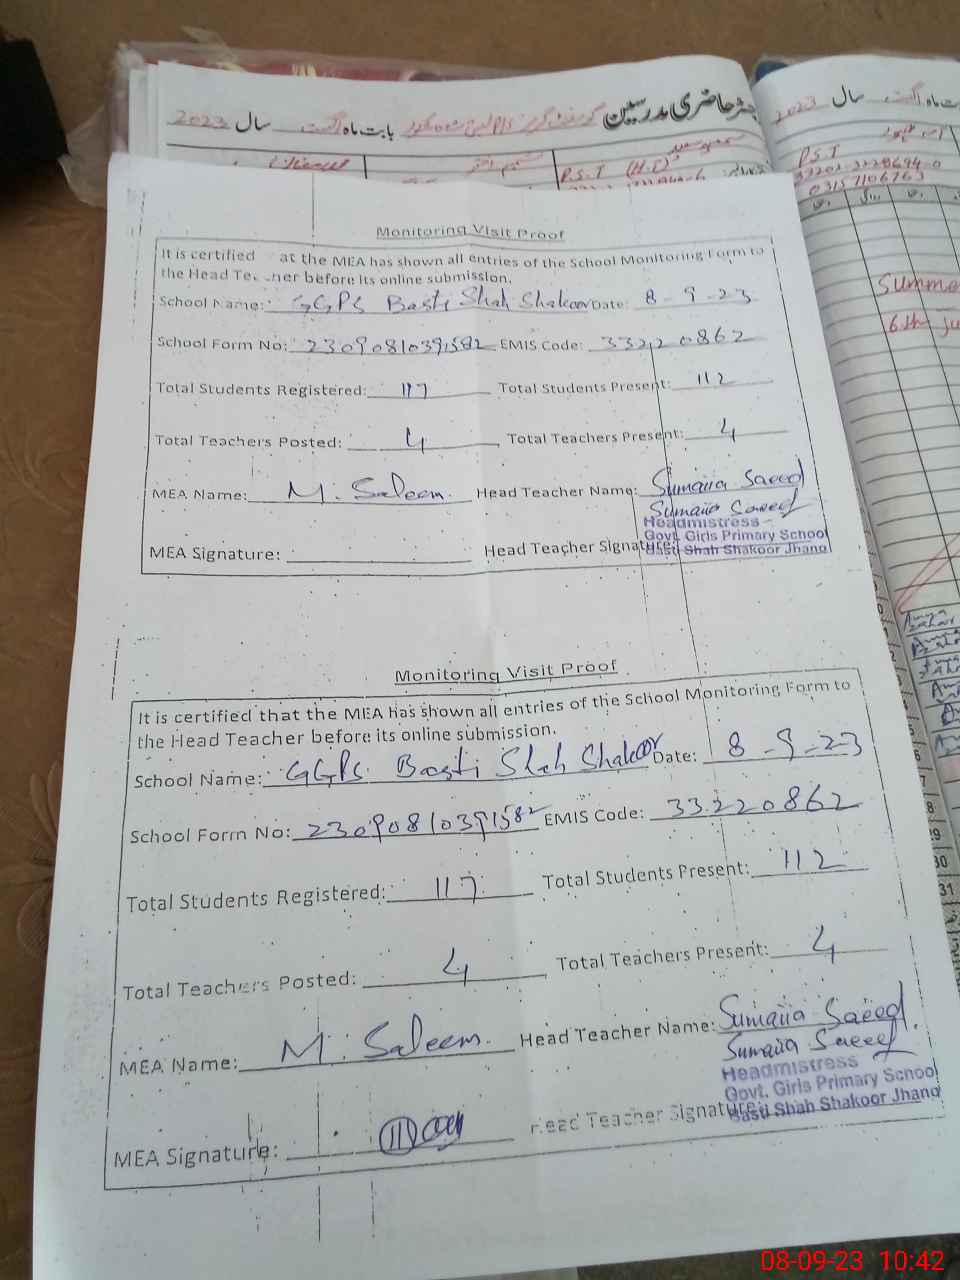 رجسٹر حاضری مدرسین گورنمنٹ گرلز بابت ماہ اگست سال 2023
P.S.T (H.T)
2023 سال اگست بابت ماہ
P.S.T
03157106763
Summe
6th Ju
Monitoring Visit Proof
It is certified at the MEA has shown all entries of the School Monitoring Form to
the Head Te cher before its online submission.
School Name: GGPS Basti Shah Shakoor Date: 8-9-23
School Form No: 23090810391582 EMIS Code: 33220862
Total Students Registered: 117 Total Students Present: 112
Total Teachers Posted: 4 Total Teachers Present: 4
MEA Name: M. Saleem. Head Teacher Name: Sumaiia Saeed
Sumaiia Saeed
Headmistress
Govt. Girls Primary School
MEA Signature: Head Teacher Signature: Basti Shah Shakoor Jhang
Monitoring Visit Proof
It is certified that the MEA has shown all entries of the School Monitoring Form to
the Head Teacher before its online submission.
School Name: GGPS Basti Shah Shakoor Date: 8-9-23
School Form No: 23090810391582 EMIS Code: 33220862
Total Students Registered: 117 Total Students Present: 112
Total Teachers Posted: 4 Total Teachers Present: 4
MEA Name: M. Saleem. Head Teacher Name: Sumaiia Saeed.
Sumaiia Saeed
Headmistress
Govt. Girls Primary School
MEA Signature: Head Teacher Signature: Basti Shah Shakoor Jhang
08-09-23 10:42